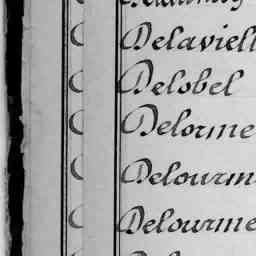 Delaviell
Delobel
Delorme
Delourm
Delourme